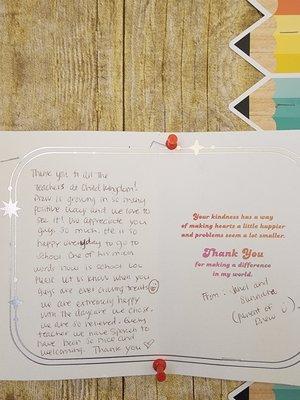 Thank you to all the
teachers at Child Kingdom!
Drew is growing in so many
positive ways and we love to
see it! We appreciate you
guys so much. He is so
happy everyday to go to
school. One of his main
words now is school lol
Please let us know when you
guys are ever craving treats
we are extremely happy
with the daycare we chose.
we are so relieved. Every
teacher we have spoken to
have been so nice and
welcoming. Thank you
Your kindness has a way
of making hearts a little happier
and problems seem a lot smaller.
Thank You
for making a difference
in my world.
From: and
(parents of
Drew